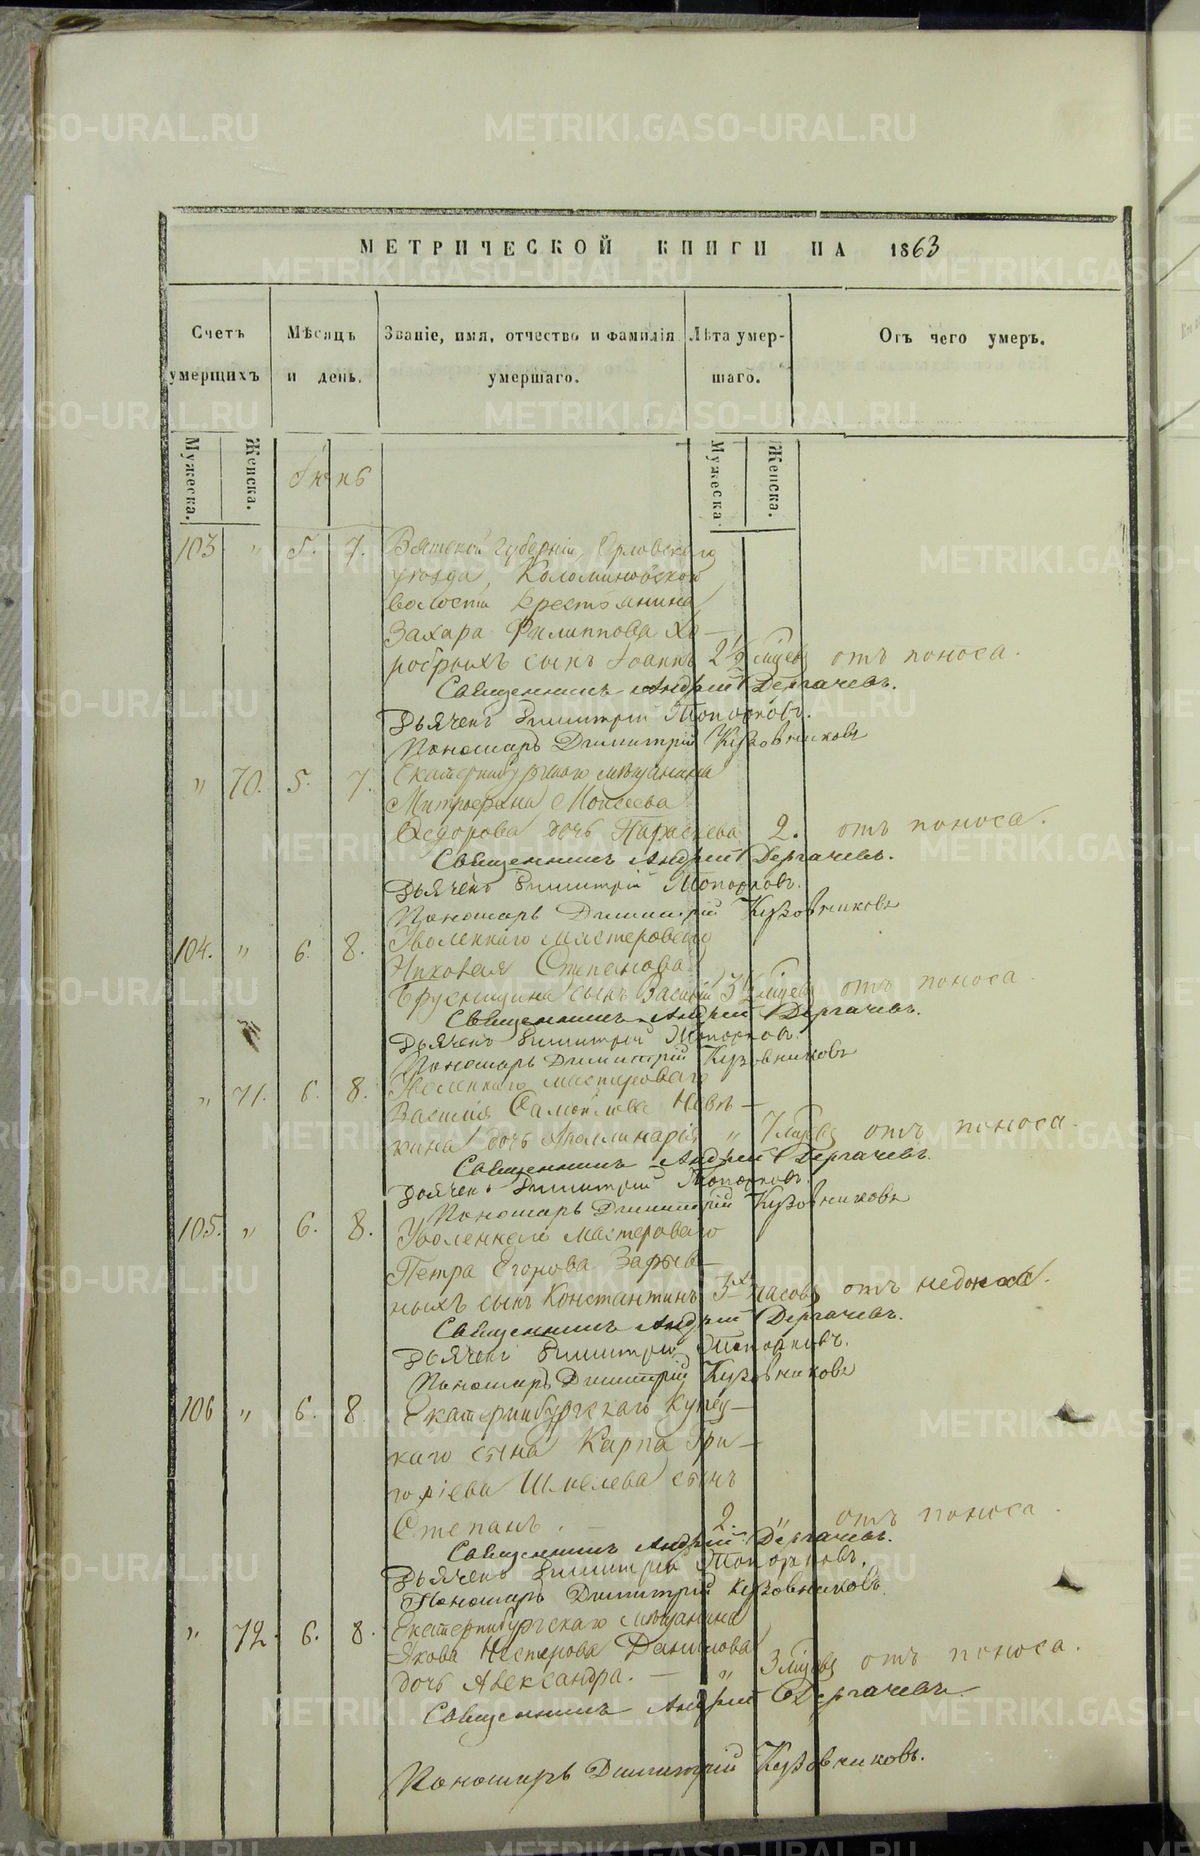 МЕТРИЧЕСКОЙ КНИГИ НА 1863
Счетъ умерщихъ
Мѣсяцъ и день.
Званіе, имя, отчество и фамилія умершаго.
Лѣта умершаго.
Отъ чего умеръ.
Мужеска. Женска. Мужеска Женска.
Іюнь
103 " 5. 7. Вятской губерніи, Орловскаго
уѣзда,
волости крестьянина
Захара Филиппова Хо-
робрыхъ сынъ Іоаннъ 2½ мѣсяцъ отъ поноса.
Священникъ Андрей Дергачевъ.
Дьяченъ Димитрій Топорковъ.
Пономарь Димитрій Кузовниковъ
" 70. 5. 7. Екатеринбургскаго мѣщанина
Митрофана Моисеева
Ѳедорова дочь Параскева 2. отъ поноса.
Священникъ Андрей Дергачевъ.
Дьяченъ Димитрій Топорковъ.
Пономарь Димитрій Кузовниковъ
104. " 6. 8. Уволеннаго мастероваго
Николая Степанова
Брусницина сынъ Василій 3½ мѣсяцъ отъ поноса
Священникъ Андрей Дергачевъ.
Дьяченъ Димитрій Топорковъ.
Пономарь Димитрій Кузовниковъ
" 71. 6. 8. Уволеннаго мастероваго
Василія Самойлова
дочь Аполлинарія " 7 мѣсяцъ отъ поноса.
Священникъ Андрей Дергачевъ.
Дьяченъ Димитрій Топорковъ.
Пономарь Димитрій Кузовниковъ
105. " 6. 8. Уволеннаго мастероваго
Петра Егорова Зарыв-
ныхъ сынъ Константинъ 3х часовъ отъ недоноса.
Священникъ Андрей Дергачевъ.
Дьяченъ Димитрій Топорковъ.
Пономарь Димитрій Кузовниковъ
106 " 6. 8. Екатеринбургскаго купец-
каго сына Карпа Гри-
горіева Шмелева сынъ
Степанъ. 2. " отъ поноса.
Священникъ Андрей Дергачевъ.
Дьяченъ Димитрій Топорковъ.
Пономарь Димитрій Кузовниковъ.
" 72. 6. 8. Екатеринбургскаго мѣщанина
Якова Нестерова Данилова
дочь Александра. — " 3 мѣсяцъ отъ поноса.
Священникъ Андрей Дергачевъ
Пономарь Димитрій Кузовниковъ.
METRIKI.GASO-URAL.RU